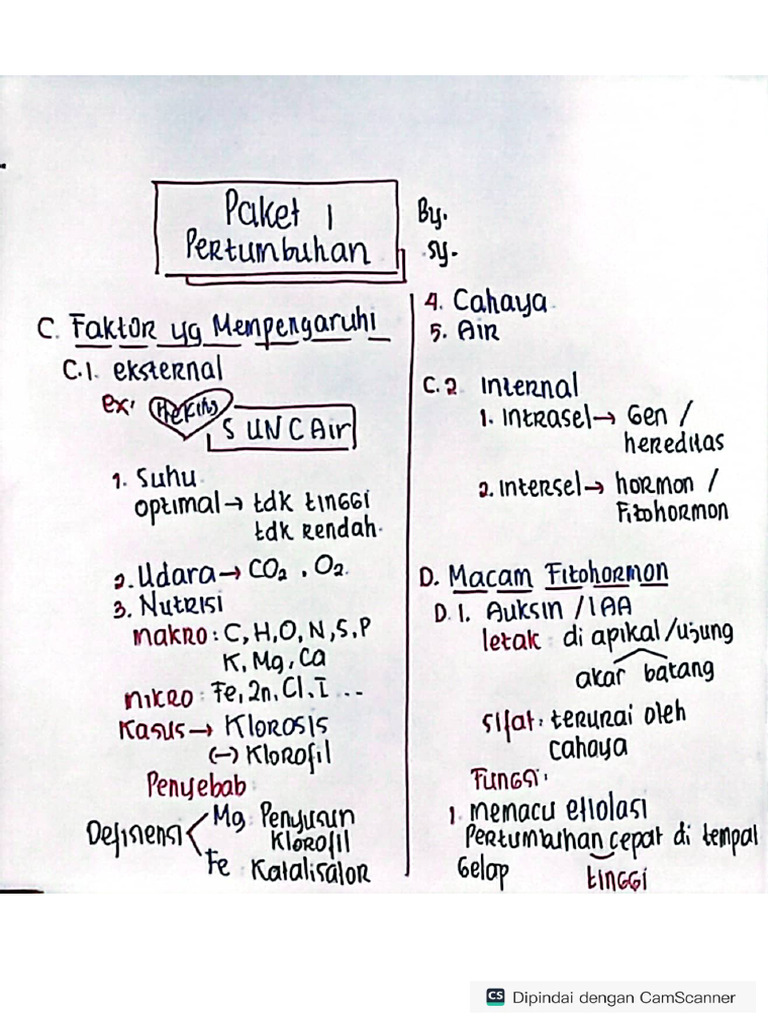 Paket 1
Pertumbuhan
By.
sy.
C. Faktor yg Mempengaruhi
C.1. eksternal
ex:
S U N C Air
1. Suhu
optimal → tdk tinggi
tdk rendah.
2. Udara → CO2 , O2.
3. Nutrisi
makro : C, H, O, N, S, P
K, Mg, Ca
mikro : Fe, Zn, Cl, I ...
Kasus → Klorosis
(-) Klorofil
Penyebab :
Defisiensi
Mg : Penyusun
Klorofil
Fe : Katalisator
4. Cahaya
5. Air
C.2 Internal
1. Intrasel → Gen /
hereditas
2. Intersel → hormon /
Fitohormon
D. Macam Fitohormon
D.1. Auksin / IAA
letak : di apikal / ujung
akar batang
Sifat : terurai oleh
cahaya
Fungsi :
1. memacu etiolasi
Pertumbuhan cepat di tempat
Gelap tinggi
CS Dipindai dengan CamScanner